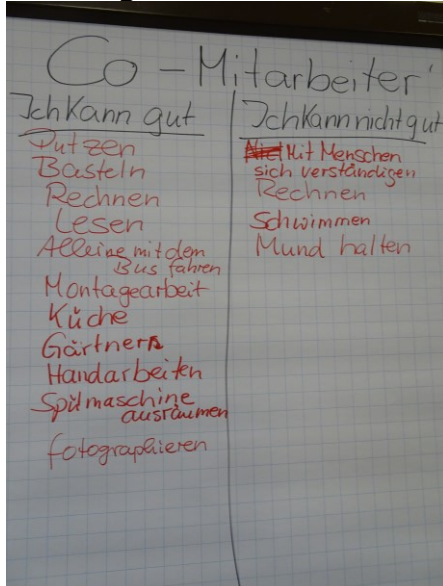 Co-Mitarbeiter
Ich Kann gut
Putzen
Basteln
Rechnen
Lesen
Alleine mit dem
Bus fahren
Montagearbeit
Küche
Gärtnern
Handarbeiten
Spülmaschine
ausräumen
fotographieren
Ich Kann nicht gut
Mit Menschen
sich verständigen
Rechnen
Schwimmen
Mund halten